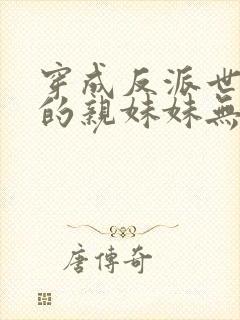 穿成反派世
的親妹妹無
唐傳奇